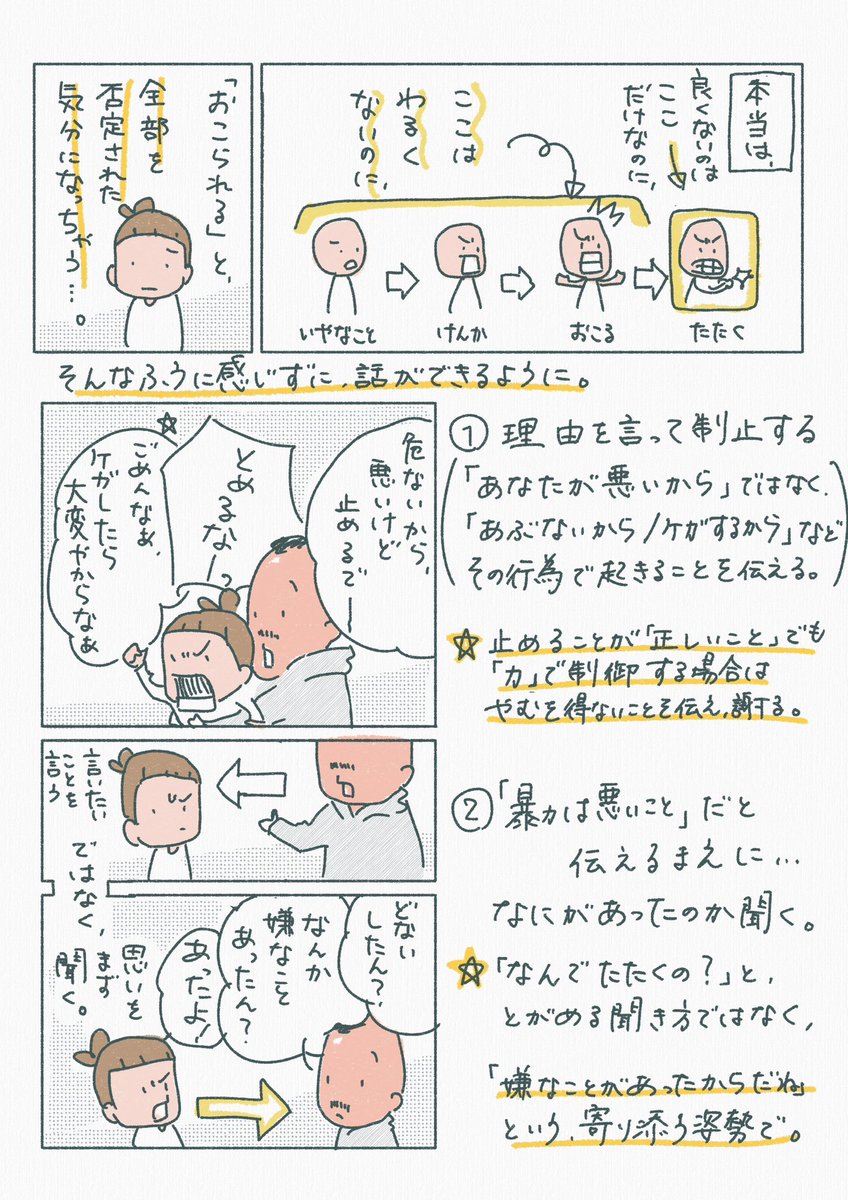 本当は、
良くないのは
ここ
だけなのに、
ここは
わるく
ないのに、
いやなこと
けんか
おこる
たたく
「おこられる」と、
全部を
否定された
気分になっちゃう…。
そんなふうに感じずに、話ができるように。
①理由を言って制止する
(「あなたが悪いから」ではなく、
「あぶないから/ケガするから」など
その行為で起きることを伝える。)
☆止めることが「正しいこと」でも
「力」で制御する場合は
やむを得ないことを伝え、謝する。
危ないから、
悪いけど
止めるでー
とめるなーっ
☆
ごめんなぁ、
ケガしたら
大変やからなぁ
②「暴力は悪いこと」だと
伝えるまえに…
なにがあったのか聞く。
☆「なんでたたくの?」と、
とがめる聞き方ではなく、
「嫌なことがあったからだね」
という、寄り添う姿勢で。
言いたい
ことを
言う
ではなく、
どない
したん?
なんか
嫌なこと
あったん?
あったよ!
思いを
まず
聞く。